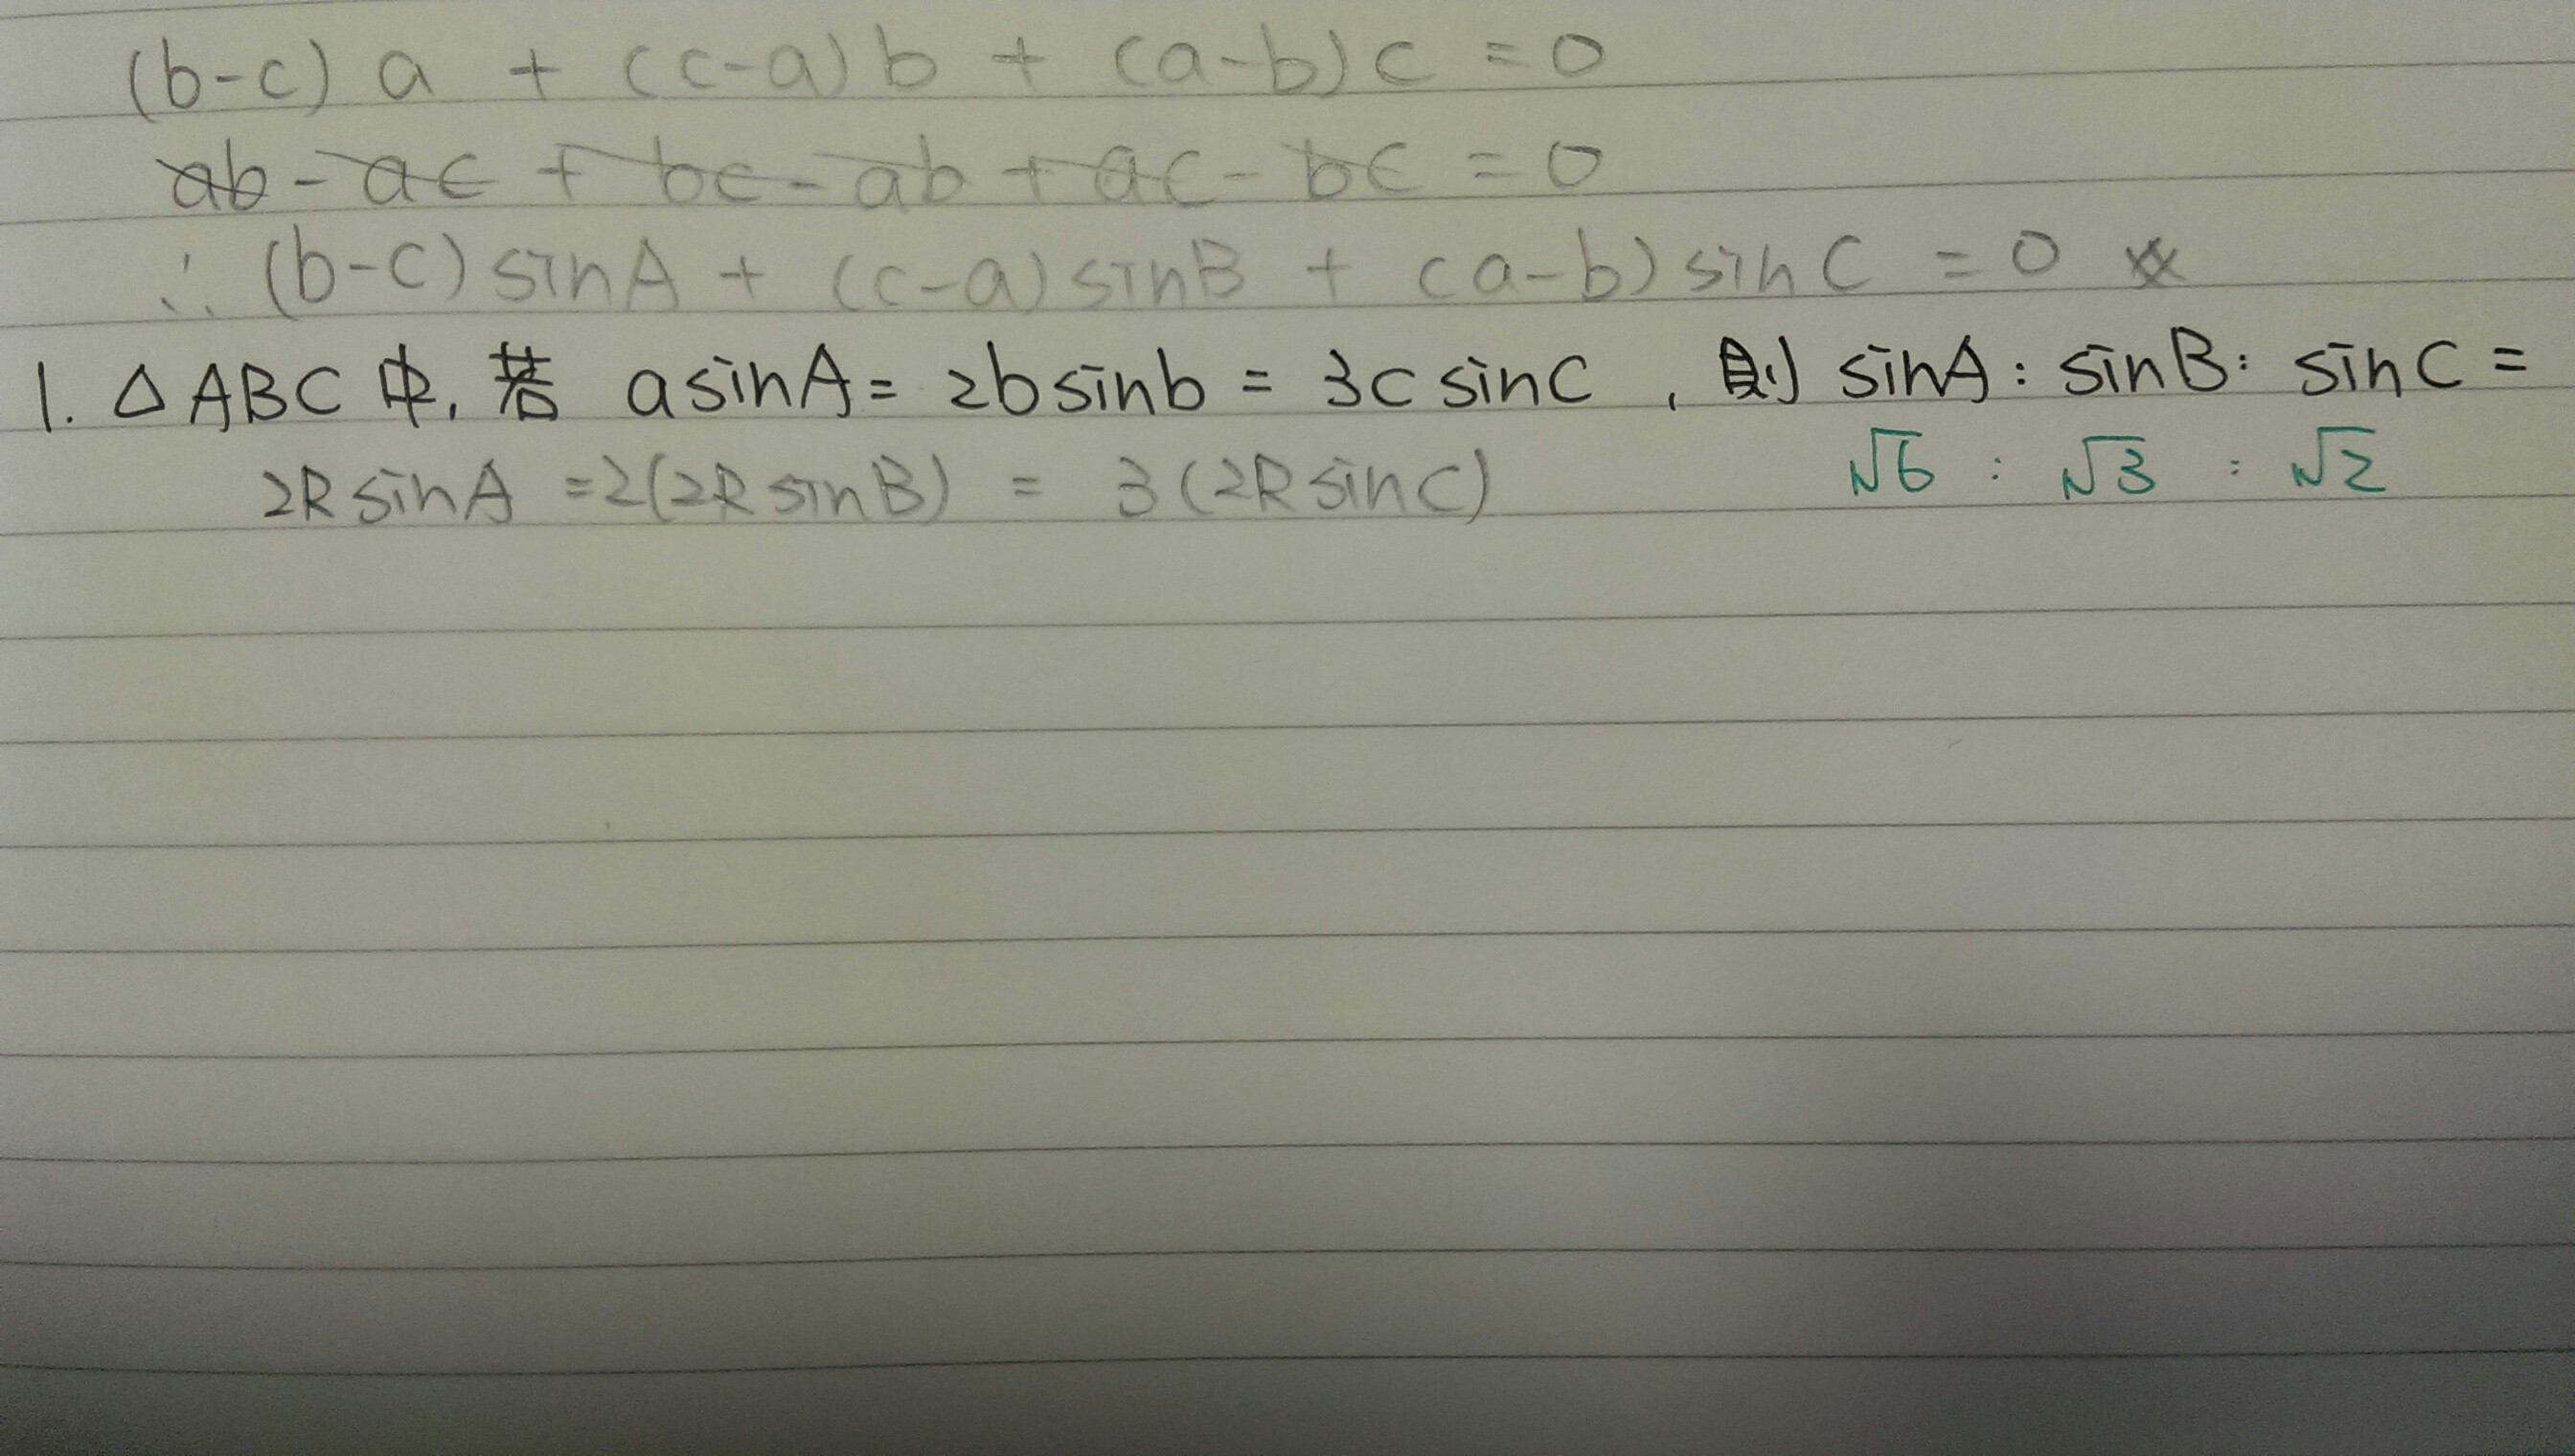 (b-c) a + (c-a) b + (a-b) c = 0
ab - ac + bc - ab + ac - bc = 0
∴ (b-c) sinA + (c-a) sinB + (a-b) sinC = 0 ※
1. △ABC中, 若 a sinA = 2b sinb = 3c sinC , 則 sinA : sinB : sinC =
2R sinA = 2(2R sinB) = 3(2R sinC) √6 : √3 : √2